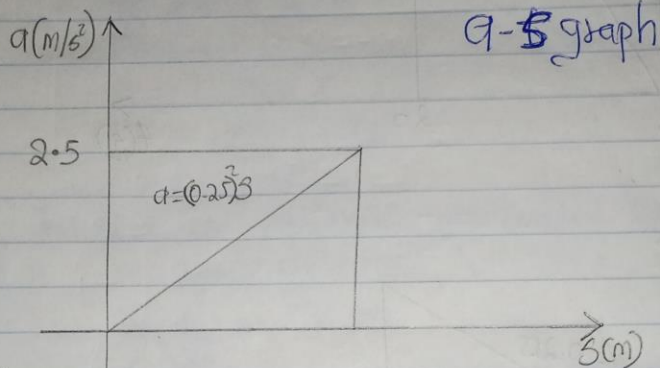 a(m/s²)
a-S graph
2.5
a=(0.25)²S
S(m)